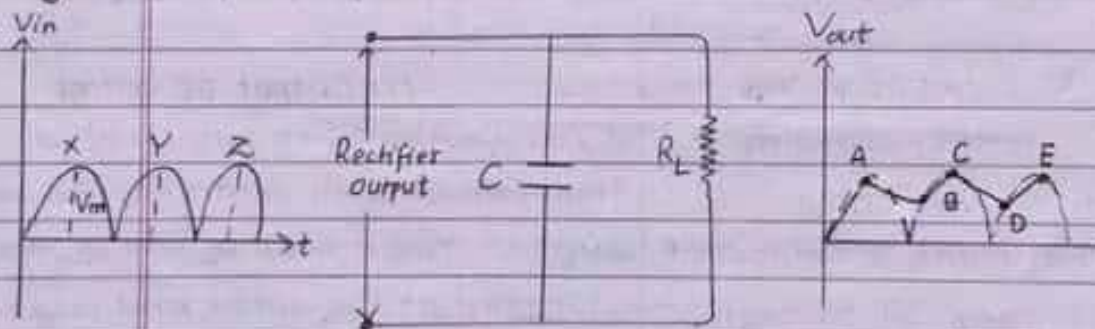 Vin
X Y Z
Vm
t
Rectifier
ourput
C
RL
Vout
A C E
V B D